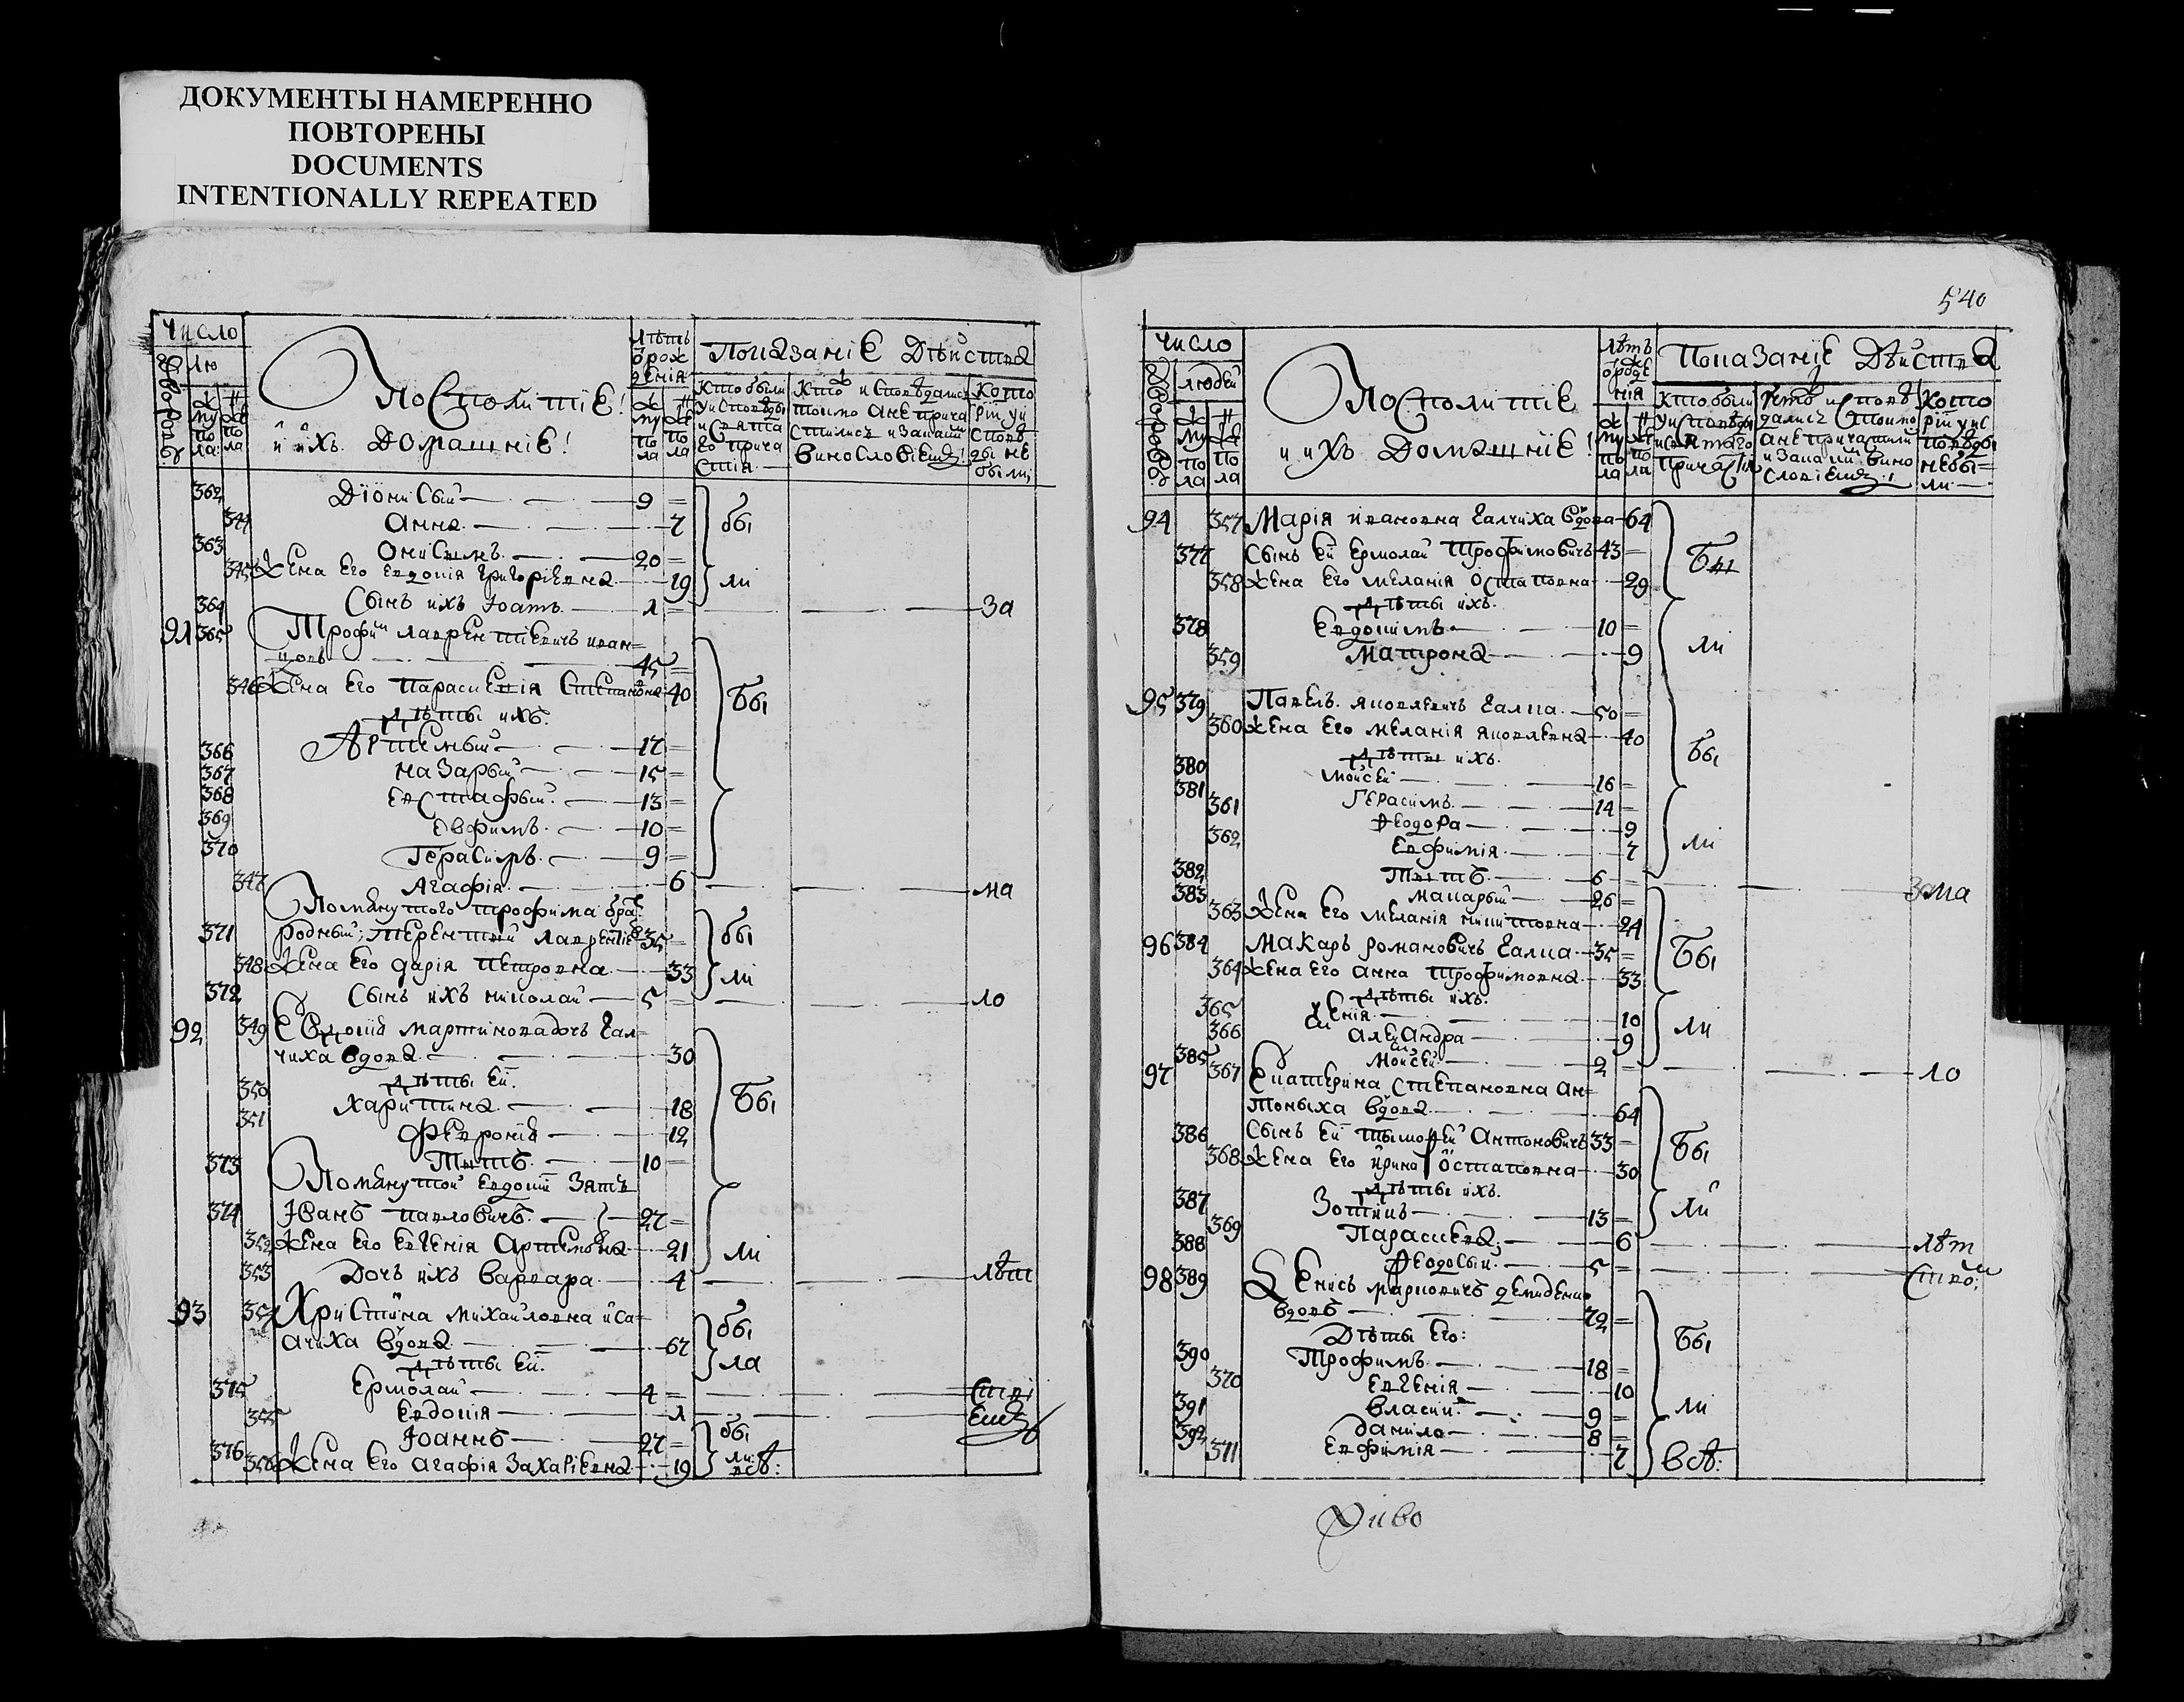 ДОКУМЕНТЫ НАМЕРЕННО
ПОВТОРЕНЫ
DOCUMENTS
INTENTIONALLY REPEATED
Число
Дворовъ
Лю
Му
по
ла
Же
по
ла
Посполитїе!
и ихъ домашнїе!
лѣтъ
ѿ рож
денїя
Му
по
ла
Же
по
ла
Показанїе дѣйства
Кто были
у исповѣды
и свята
го прича
стия
Кто исповѣдались
токмо а не прича
стились и за какїй
винословїемъ!
кото
рїи у и
спов
ды не
были,
362 Дїонисїй 9 =
344 Анна 7
363 Онисимъ 20 =
345 Жена его Евдокія Григорїевна 19
бы
ли
364 Сынъ ихъ Іоаннъ 1 = за
91 365 Трофимъ Лаврентїевичъ Иван=
цовъ 45 =
346 Жена его Параскевїя Степановна 40
Дѣты ихъ.
366 Артемый 17 =
367 Назарый 15 =
368 Евстафый 13 =
369 Евфимъ 10 =
370 Герасимъ 9 =
бы
347 Агафія 6 ма
Помянутого Трофима братъ
371 родный, Терентый Лаврентїевъ 35 =
348 Жена его Дарія Петровна 33
бы
ли
372 Сынъ ихъ Николай 5 = ло
92 349 Евдокїя Мартиновадочъ Гал=
чиха вдова 30
Дѣты ей.
350 Харитина 18
351 Феврония 12
373 Титъ 10 =
Помянутой Евдокїи зять
374 Іванъ Павловичъ 27 =
352 Жена его Евгенія Артемовна 21
бы
ли
353 Дочъ ихъ Варвара 4 лѣт
93 354 Христина Михайловна Иса=
ачиха вдова 67
бы
ла
Дѣты ей.
375 Ермолай 4 = стві
355 Евдокія 1 емъ
Іоаннъ 27 =
376 356 Жена его Агафія Захарїевна 19
бы
ли
всѣ:
540
Число
Дворовъ
людей
Му
по
ла
Же
по
ла
Посполитїе
и ихъ домашнїе!
лѣтъ
ѿ рожде
нїя
Му
по
ла
Же
по
ла
Показанїе дѣйства
Кто были
у исповѣды
и святаго
причастия
Кто исповѣ
дались токмо
а не причастили
и за какїй вино
словїемъ!
Кото
рїи у ис
повѣды
не бы=
ли
94 357 Марія Ивановна Галчиха вдова 64
377 Сынъ ей Ермолай Трофимовичъ 43 =
358 Жена его Меланія Остаповна 29
Дѣты ихъ.
378 Евдокимъ 10 =
359 Матрона 9
бы
ли
95 379 Павелъ Яковлевичъ Галка 50 =
360 Жена его Меланія Яковлевна 40
Дѣты ихъ.
380 Мойсей 16 =
381 Герасимъ 14 =
361 Ѳеодора 9
362 Евфимія 7
бы
ли
382 Титъ 6 = зама
383 Макарый 26 =
363 Жена его Меланія Никитовна 24
96 384 Макаръ Романовичъ Галка 35 =
364 Жена его Анна Трофимовна 33
Дѣты ихъ.
365 10
366 Александра 9
бы
ли
385 Мойсей 2 = ло
97 367 Екатерина Степановна Ан=
тониха вдова 64
386 Сынъ ей Тымоѳей Антоновичъ 33 =
368 Жена его Ирина Остаповна 30
Дѣты ихъ.
387 Зотикъ 13 =
бы
ли
369 Параскева, 6 лѣт
388 Ѳеодосый 5 = ство:
98 389 Денисъ Марковичъ Демиденко
вдовъ 72 =
Дѣты его:
390 Трофимъ 18 =
370 Евгенія 10
391 Власий 9 =
392 Данило 8 =
371 Евфимія 7
бы
ли
всѣ:
Диво